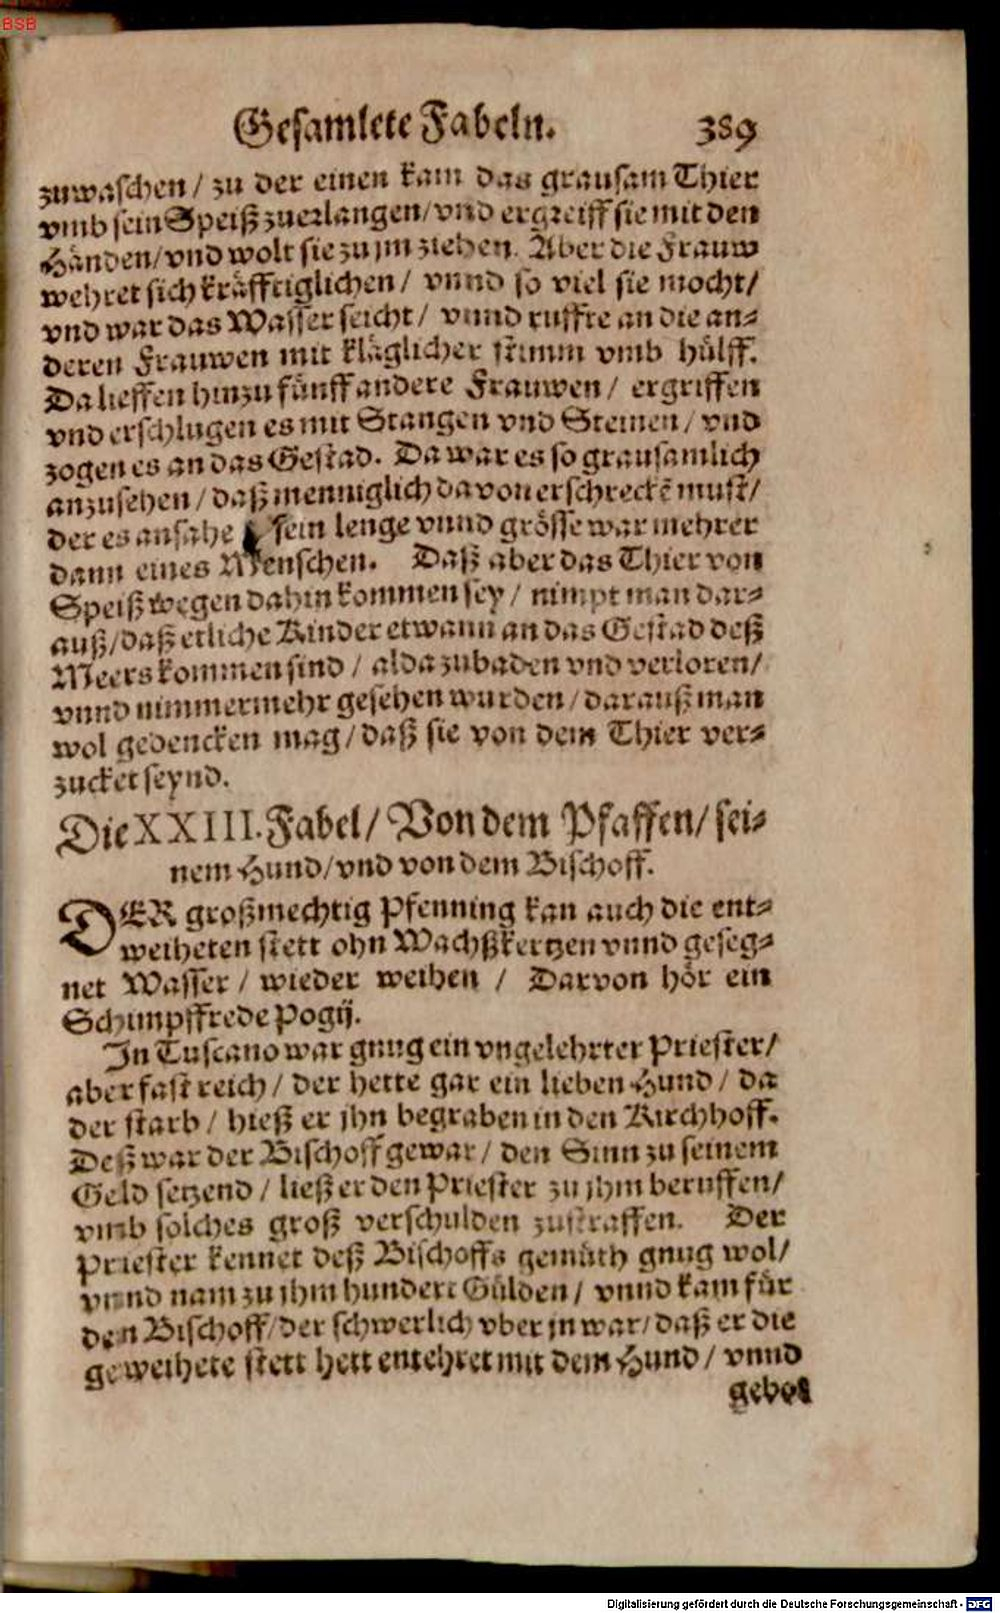 BSB
Gesamlete Fabeln. 389
zuwaschen / zu der einen kam das grausam Thier
vmb sein Speiß zuerlangen / vnd ergreiff sie mit den
Händen / vnd wolt sie zu jm ziehen. Aber die Frauw
wehret sich kräfftiglichen / vnnd so viel sie mocht /
vnd war das Wasser seicht / vnnd ruffte an die an-
deren Frauwen mit kläglicher stimm vmb hülff.
Da lieffen hinzu fünff andere Frauwen / ergriffen
vnd erschlugen es mit Stangen vnd Steinen / vnd
zogen es an das Gestad. Da war es so grausamlich
anzusehen / daß menniglich davon erschreckẽ must /
der es ansahe / sein lenge vnnd grösse war mehrer
dann eines Menschen. Daß aber das Thier von
Speiß wegen dahin kommen sey / nimpt man dar-
auß / daß etliche Kinder etwann an das Gestad deß
Meers kommen sind / alda zubaden vnd verloren /
vnnd nimmermehr gesehen wurden / darauß man
wol gedencken mag / daß sie von dem Thier ver-
zucket seynd.
Die XXIII. Fabel / Von dem Pfaffen / sei-
nem Hund / vnd von dem Bischoff.
DER großmechtig Pfenning kan auch die ent-
weiheten stett ohn Wachßkertzen vnnd geseg-
net Wasser / wieder weihen / Darvon hör ein
Schimpffrede Pogij.
In Tuscano war gnug ein vngelehrter Priester /
aber fast reich / der hette gar ein lieben Hund / da
der starb / hieß er jhn begraben in den Kirchhoff.
Deß war der Bischoff gewar / den Sinn zu seinem
Geld setzend / ließ er den Priester zu jhm beruffen /
vmb solches groß verschulden zustraffen. Der
Priester kennet deß Bischoffs gemüth gnug wol /
vnnd nam zu jhm hundert Gülden / vnnd kam für
den Bischoff / der schwerlich vber jn war / daß er die
geweihete stett hett entehret mit dem Hund / vnnd
gebot
Digitalisierung gefördert durch die Deutsche Forschungsgemeinschaft - DFG